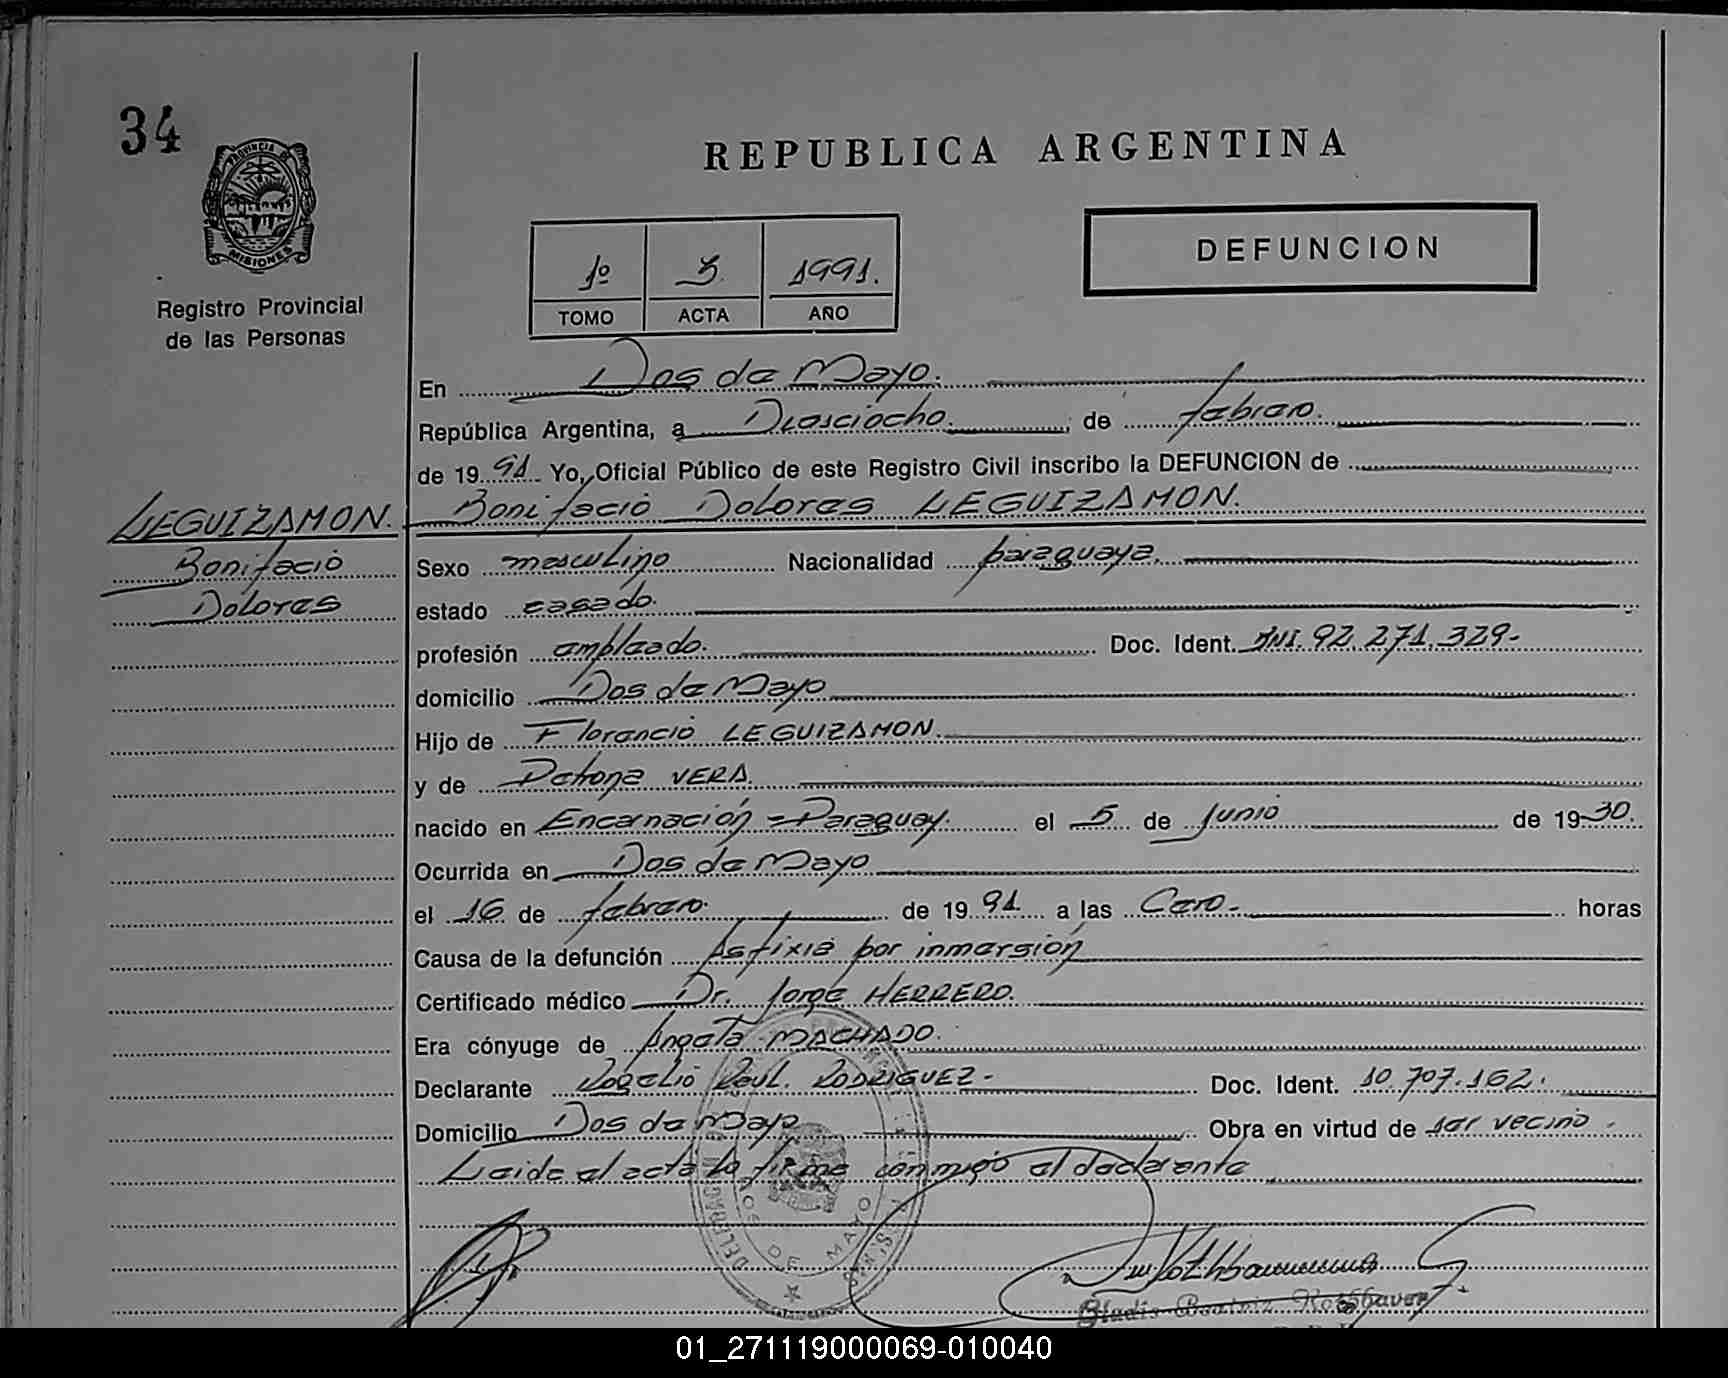 34
PROVINCIA DE
MISIONES
Registro Provincial
de las Personas
REPUBLICA ARGENTINA
1º 5. 1991.
TOMO ACTA AÑO
DEFUNCION
En Dos de Mayo.
República Argentina, a Dieciocho de febrero.
de 1991 Yo, Oficial Público de este Registro Civil inscribo la DEFUNCION de
LEGUIZAMON. Bonifacio Dolores LEGUIZAMON.
Bonifacio Sexo masculino Nacionalidad paraguaya.
Dolores estado casado.
profesión empleado. Doc. Ident. DNI. 92.271.329-
domicilio Dos de Mayo
Hijo de Florencio LEGUIZAMON.
y de Petrona VERA.
nacido en Encarnación = Paraguay. el 5 de Junio de 1930.
Ocurrida en Dos de Mayo
el 16 de febrero. de 1991 a las Cero- horas
Causa de la defunción Asfixia por inmersión
Certificado médico Dr. Jorge HERRERO.
Era cónyuge de MACHADO.
Declarante Rogelio Raul. RODRIGUEZ- Doc. Ident. 10.707.162.
Domicilio Dos de Mayo Obra en virtud de ser vecino.
Leida el acta la firma conmigo el declarante
DOS DE MAYO
Gladis Beatriz
01_271119000069-010040